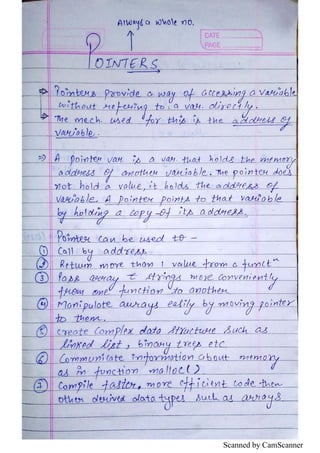 Always a whole no.
DATE
PAGE
POINTERS
Pointers provide a way of accessing a variable
without refering to a var. directly.
The mech. used for this is the address of
variable.
⇒ A pointer var is a var that holds the memory
address of another variable. The pointer does
not hold a value, it holds the address of
variable. A pointer points to that variable
by holding a copy of its address.
Pointer can be used to -
① Call by address
② Return more than 1 value from a functn
③ Pass array & strings more conveniently
from one function to another
④ Manipulate arrays easily by moving pointer
to them.
⑤ create Complex data structure such as
linked list, binary trees etc.
⑥ Communicate information about memory
as in function malloc()
⑦ Compile faster, more efficient code then
other derived data types such as arrays.
Scanned by CamScanner